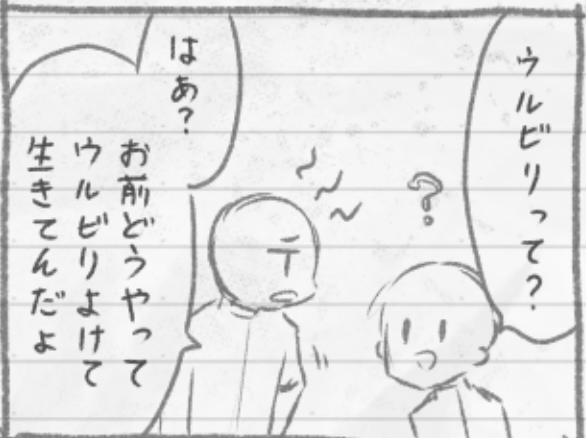 ウルビリって?
?
はあ?
お前どうやって
ウルビリよけて
生きてんだよ